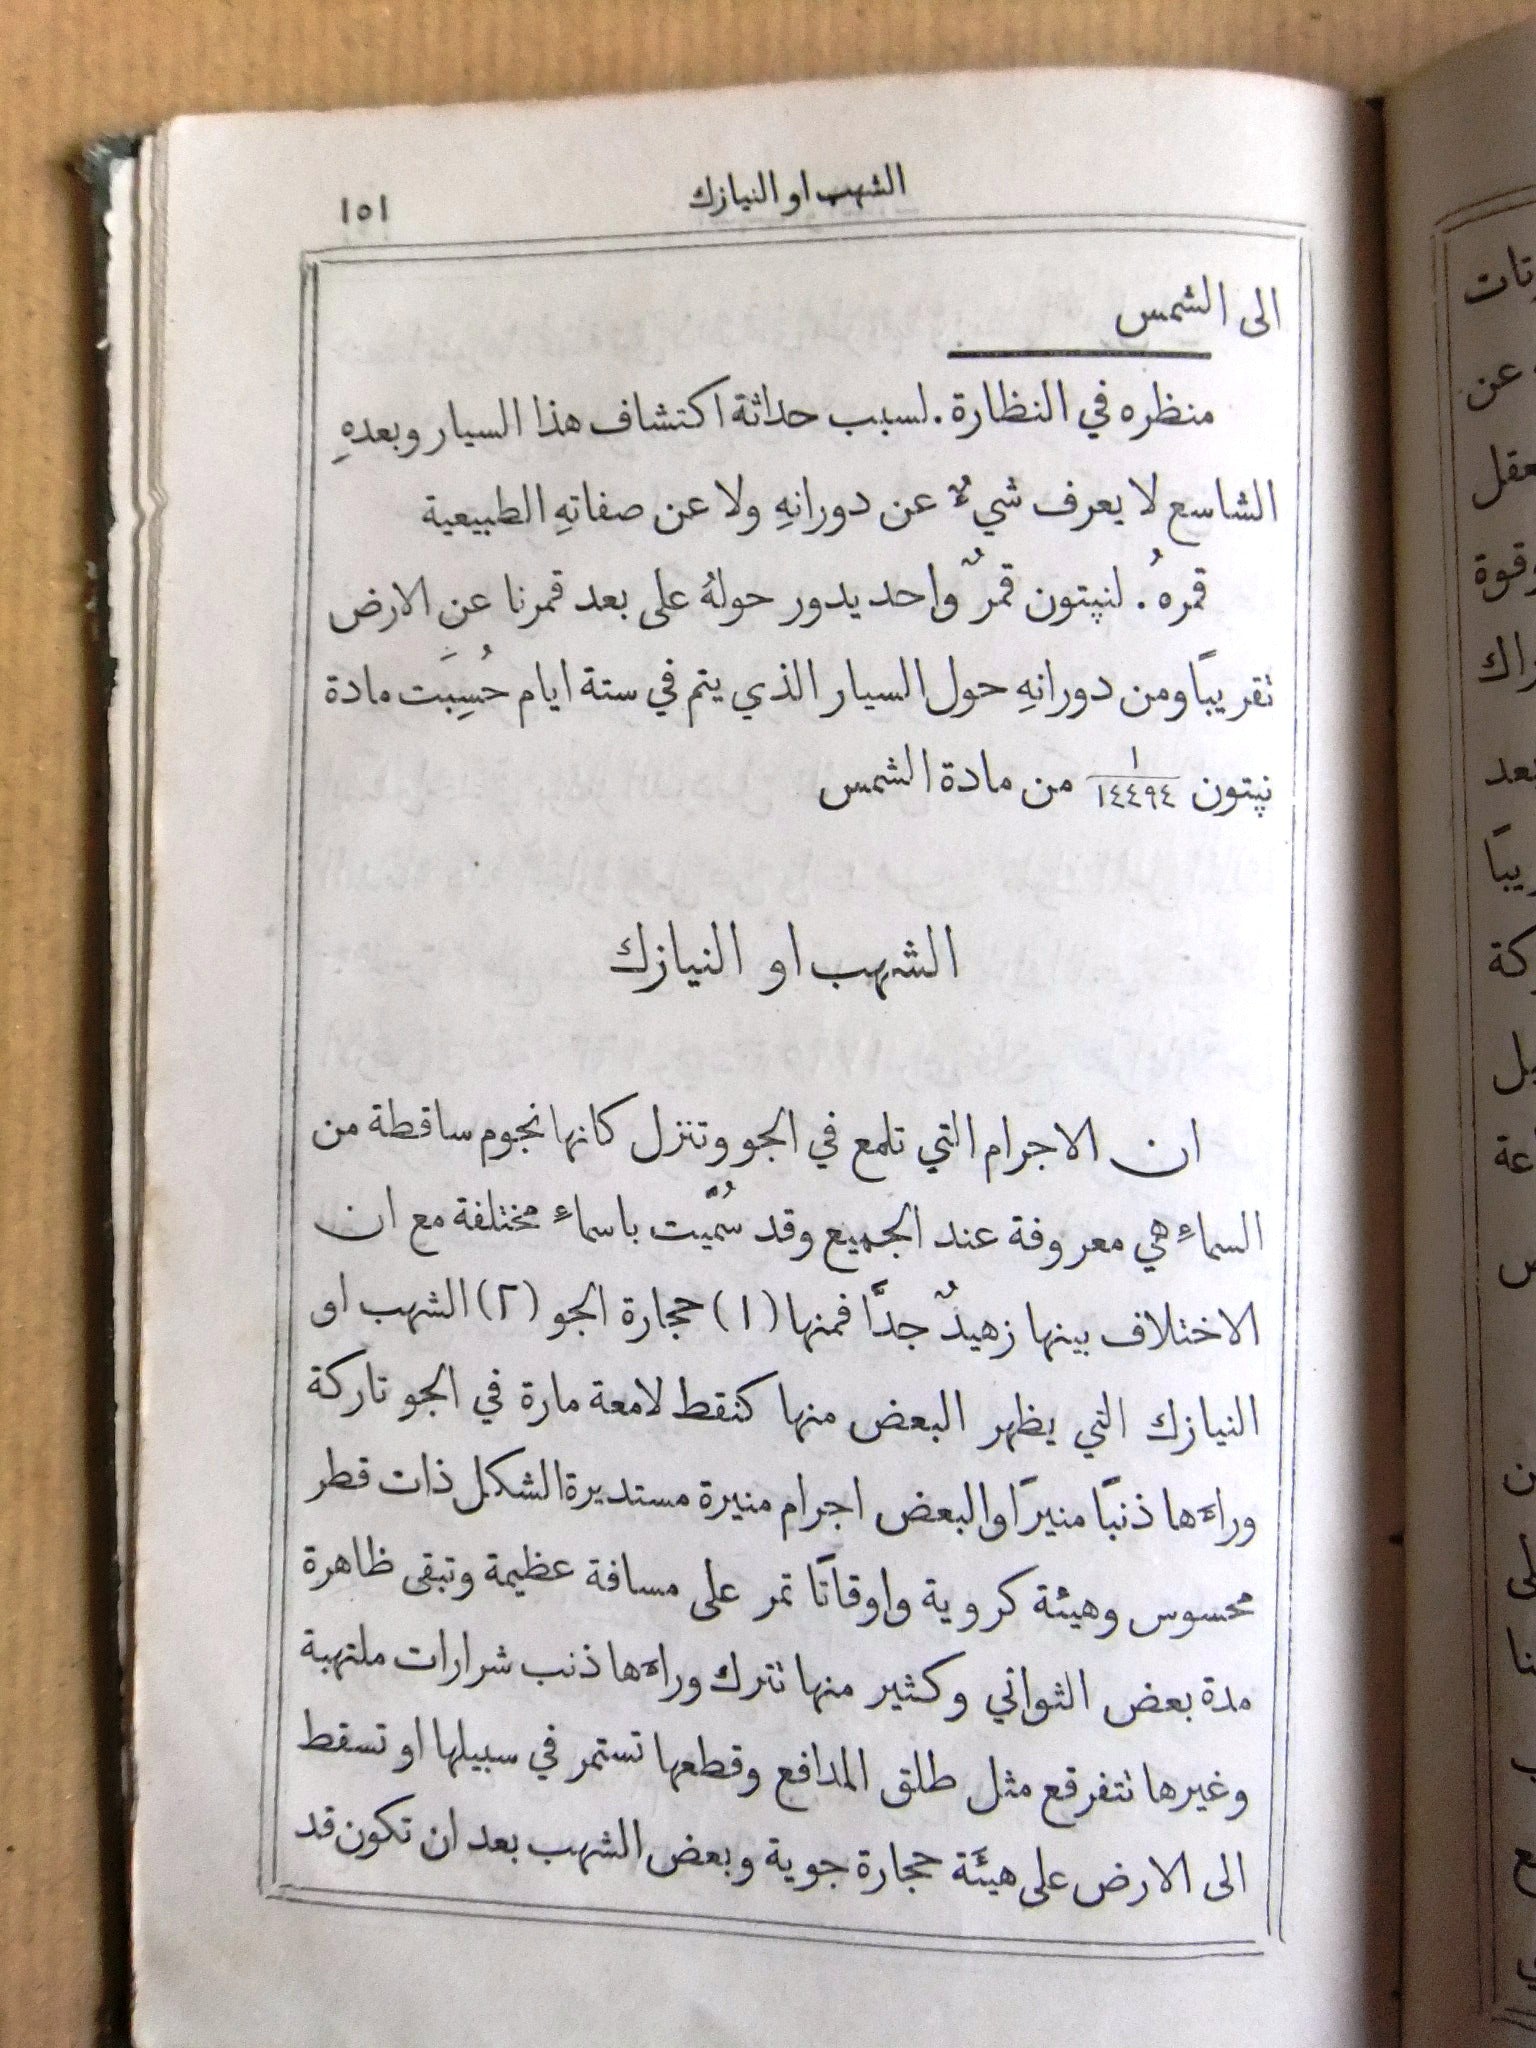 الشهب او النيازك
١٥١
الى الشمس
منظره في النظارة. لسبب حداثة اكتشاف هذا السيار وبعدهِ
الشاسع لا يعرف شيءٌ عن دورانهِ ولا عن صفاتهِ الطبيعية
قمرهُ. لنپتون قمرٌ واحد يدور حولهُ على بعد قمرنا عن الارض
تقريبًا ومن دورانهِ حول السيار الذي يتم في ستة ايام حُسِبَت مادة
نپتون ١/١٤٤٩٤ من مادة الشمس
الشهب او النيازك
ان الاجرام التي تلمع في الجو وتنزل كانها نجوم ساقطة من
السماء هي معروفة عند الجميع وقد سُمّيت باسماء مختلفة مع ان
الاختلاف بينها زهيدٌ جدًّا فمنها (١) حجارة الجو (٢) الشهب او
النيازك التي يظهر البعض منها كنقط لامعة مارة في الجو تاركة
وراءها ذنبًا منيرًا والبعض اجرام منيرة مستديرة الشكل ذات قطر
محسوس وهيئة كروية واوقاتًا تمر على مسافة عظيمة وتبقى ظاهرة
مدة بعض الثواني وكثير منها تترك وراءها ذنب شرارات ملتهبة
وغيرها تتفرقع مثل طلق المدافع وقطعها تستمر في سبيلها او تسقط
الى الارض على هيئة حجارة جوية وبعض الشهب بعد ان تكون قد